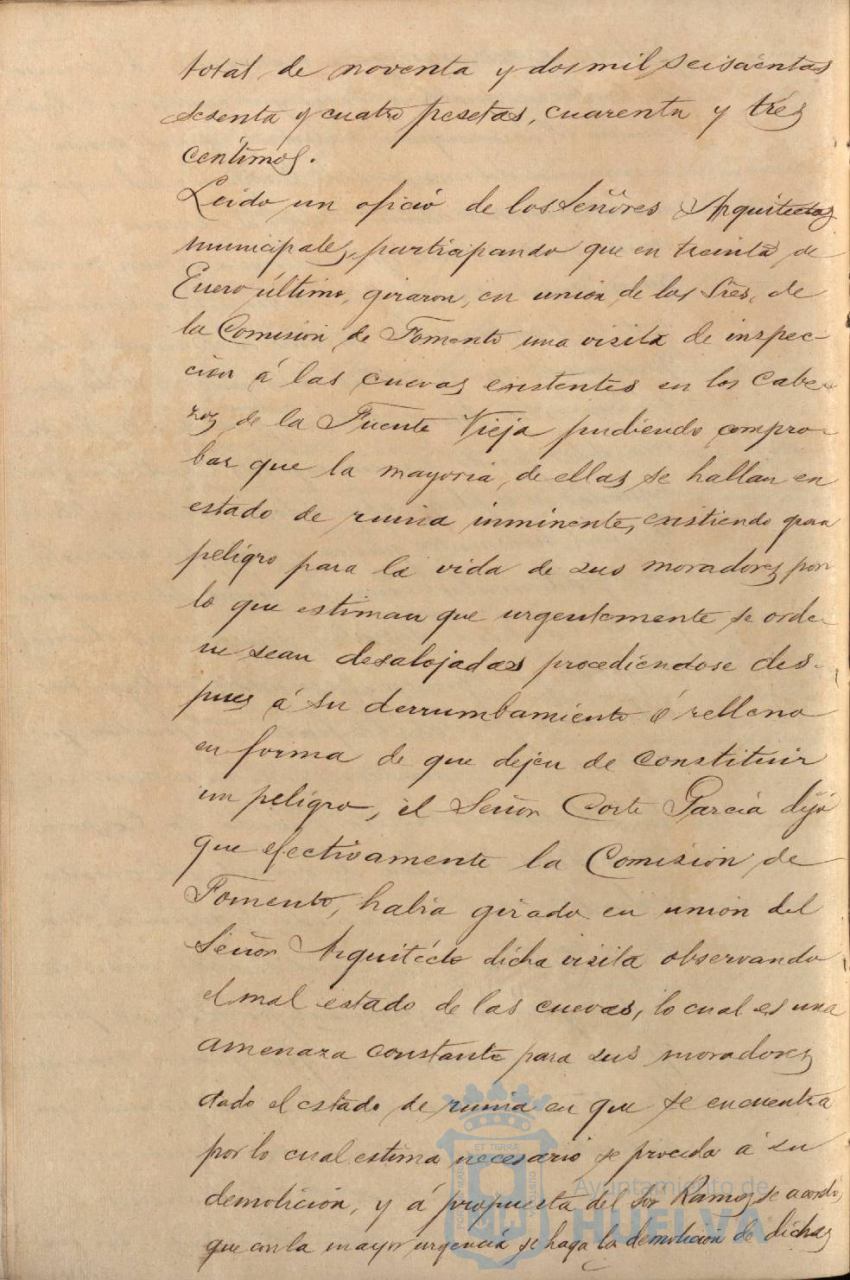 total de noventa y dos mil seiscientas
sesenta y cuatro pesetas, cuarenta y tres
centimos.
Leido un oficio de los Señores Arquitectos
municipales, participando que en treinta de
Enero último, giraron, en unión de los Sres. de
la Comisión de Fomento una visita de inspec-
ción á las cuevas existentes en los Cabe-
zos de la Fuente Vieja pudiendo compro-
bar que la mayoria de ellas se hallan en
estado de ruina inminente, existiendo gran
peligro para la vida de sus moradores por
lo que estiman que urgentemente se orde-
ne sean desalojadas procediéndose des-
pues á su derrumbamiento ó relleno
en forma de que dejen de constituir
un peligro, el Señor Corte García dijó
que efectivamente la Comisión de
Fomento, habia girado en unión del
Señor Arquitécto dicha visita observando
el mal estado de las cuevas, lo cual es una
amenaza constante para sus moradores
dado el estado de ruina en que se encuentra
por lo cual estima necesario se proceda á su
demolición, y á propuesta del Sor Ramos se acordó,
que con la mayor urgencia se haga la demolición de dichas
Ayuntamiento de
HUELVA